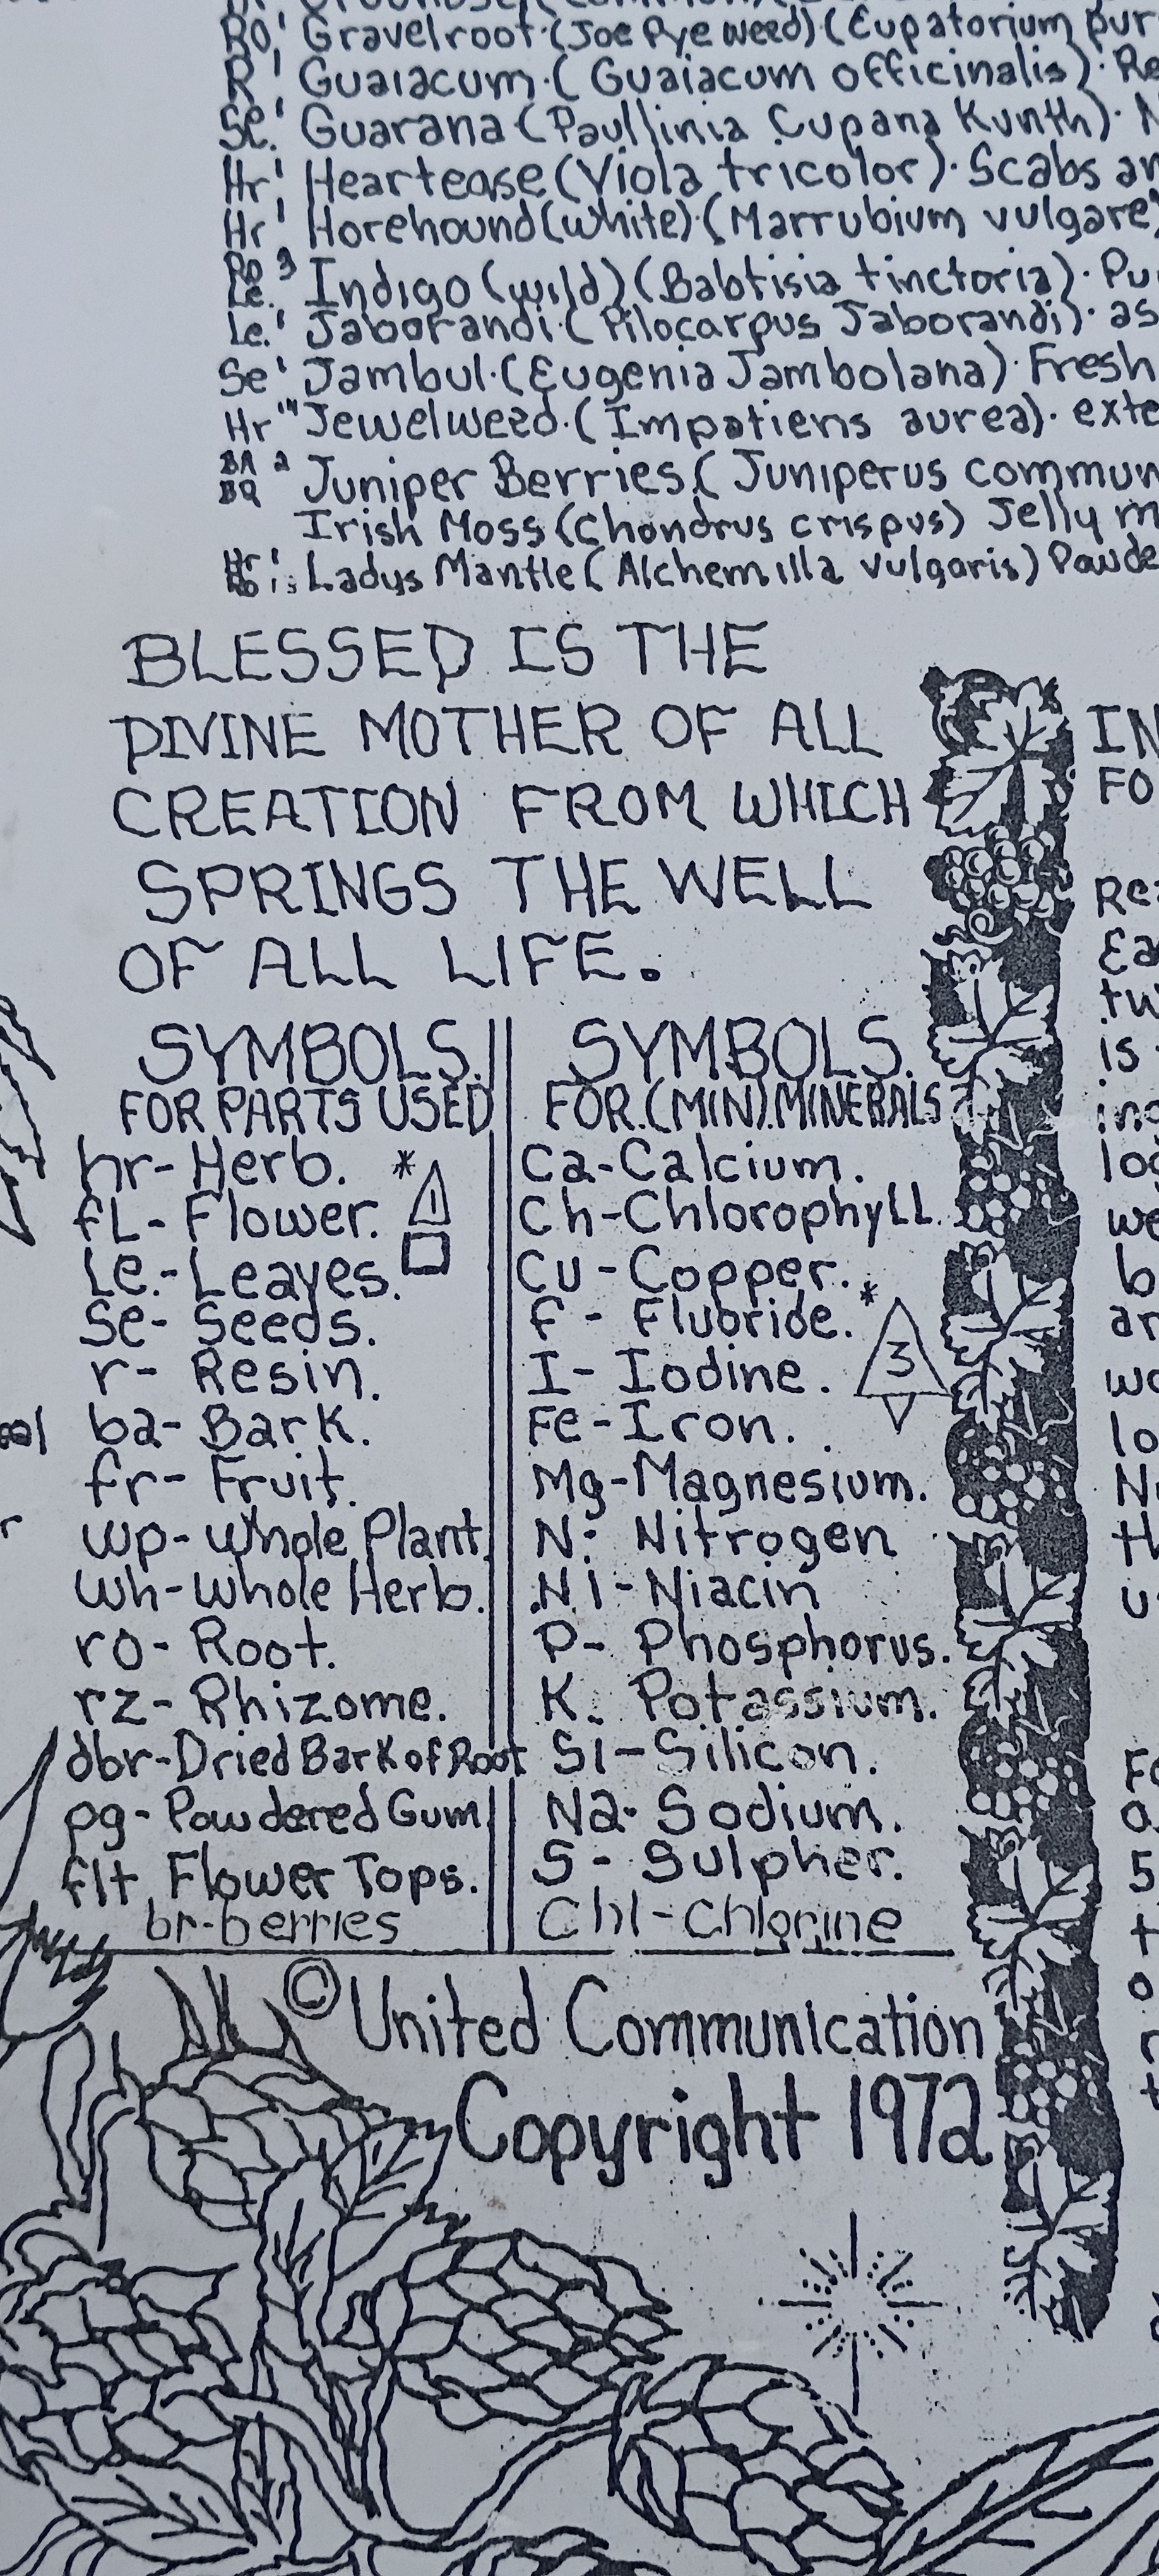 Ro.' Gravelroot.(Joe Pye weed)(Eupatorium pur
R' Guaiacum.(Guaiacum officinalis). Re
Se.' Guarana (Paullinia Cupana Kunth). N
Hr' Heartease (Viola tricolor). Scabs an
Hr' Horehound(white).(Marrubium vulgare)
Ro 3
Le. Indigo (wild)(Babtisia tinctoria). Pu
Le.' Jaborandi.(Pilocarpus Jaborandi). as
Se' Jambul.(Eugenia Jambolana). Fresh
Hr Jewelweed.(Impatiens aurea). exte
Juniper Berries.(Juniperus commun
Irish Moss (Chondrus crispus) Jelly m
Ladys Mantle (Alchemilla vulgaris) Powde
BLESSED IS THE
DIVINE MOTHER OF ALL
CREATION FROM WHICH
SPRINGS THE WELL
OF ALL LIFE.
SYMBOLS.
FOR PARTS USED
hr-Herb. *
fL-Flower. 1
Le.-Leaves.
Se-Seeds.
r-Resin.
ba-Bark.
fr-Fruit.
wp-Whole Plant.
wh-Whole Herb.
ro-Root.
rz-Rhizome.
dbr-Dried Bark of Root
pg-Powdered Gum
flt. Flower Tops.
br-berries
SYMBOLS.
FOR.(MIN).MINERALS
Ca-Calcium.
Ch-ChlorophyLL.
Cu-Copper.
F-Fluoride. *
I-Iodine. 3
Fe-Iron.
Mg-Magnesium.
N: Nitrogen
.Ni-Niacin
P-Phosphorus.
K. Potassium.
Si-Silicon.
Na-Sodium.
S-Sulpher.
Chl-Chlorine
© United Communication
Copyright 1972
IN
FO
Ea
tw
is
ing
loc
we
b
ar
wo
lo
N
th
u
Fo
a
5
t
o